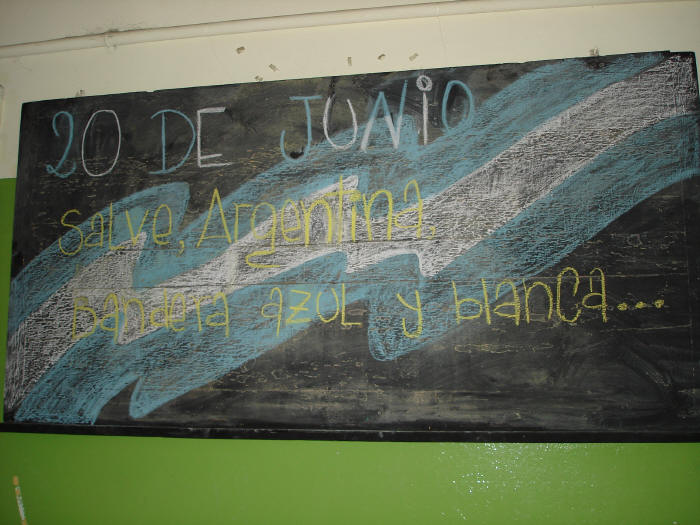 20 DE JUNiO
Salve, Argentina,
bandera azul y blanca...